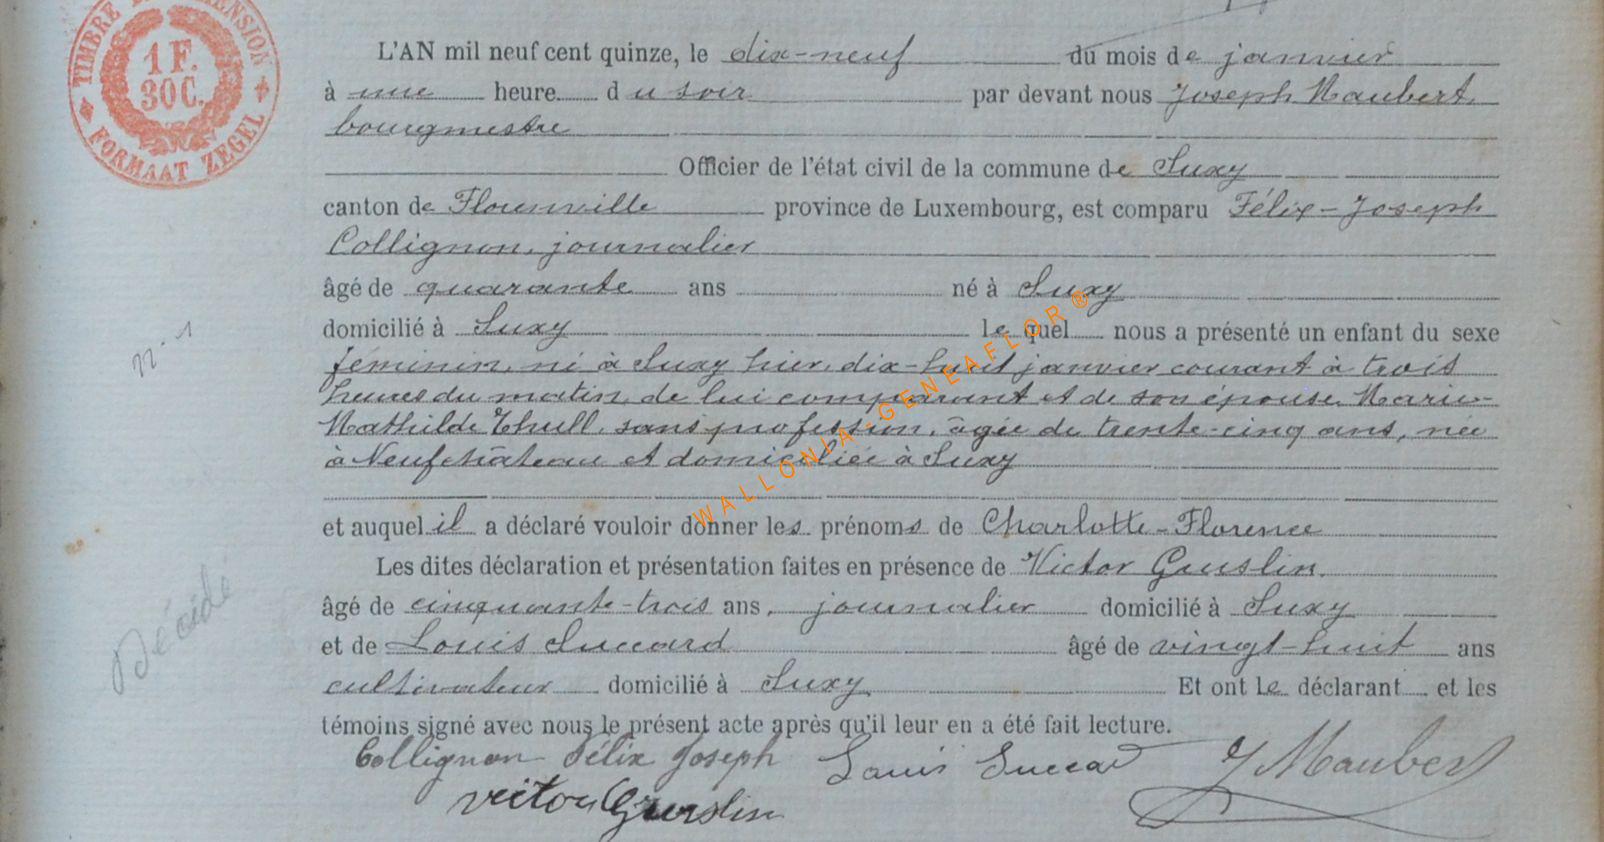 TIMBRE DE DIMENSION
1 F.
30C.
FORMAAT ZEGEL
L'AN mil neuf cent quinze, le dix-neuf du mois de janvier
à une heure du soir par devant nous Joseph Maubert,
bourgmestre
Officier de l'état civil de la commune de Suxy
canton de Florenville province de Luxembourg, est comparu Félix-Joseph
Collignon, journalier
âgé de quarante ans né à Suxy
domicilié à Suxy lequel nous a présenté un enfant du sexe
féminin, né à Suxy hier, dix-huit janvier courant à trois
heures du matin, de lui comparant et de son épouse Marie-
Mathilde Thull, sans profession, âgée de trente-cinq ans, née
à Neufchâteau et domiciliée à Suxy
et auquel il a déclaré vouloir donner les prénoms de Charlotte-Florence
Les dites déclaration et présentation faites en présence de Victor Guislin,
âgé de cinquante-trois ans, journalier domicilié à Suxy
et de Louis Succard âgé de vingt-huit ans
cultivateur domicilié à Suxy Et ont le déclarant et les
témoins signé avec nous le présent acte après qu'il leur en a été fait lecture.
Collignon Félix Joseph Louis Succard J Maubert
victor
22-1
Décidé
WALLONIA-GENEAFLOR®